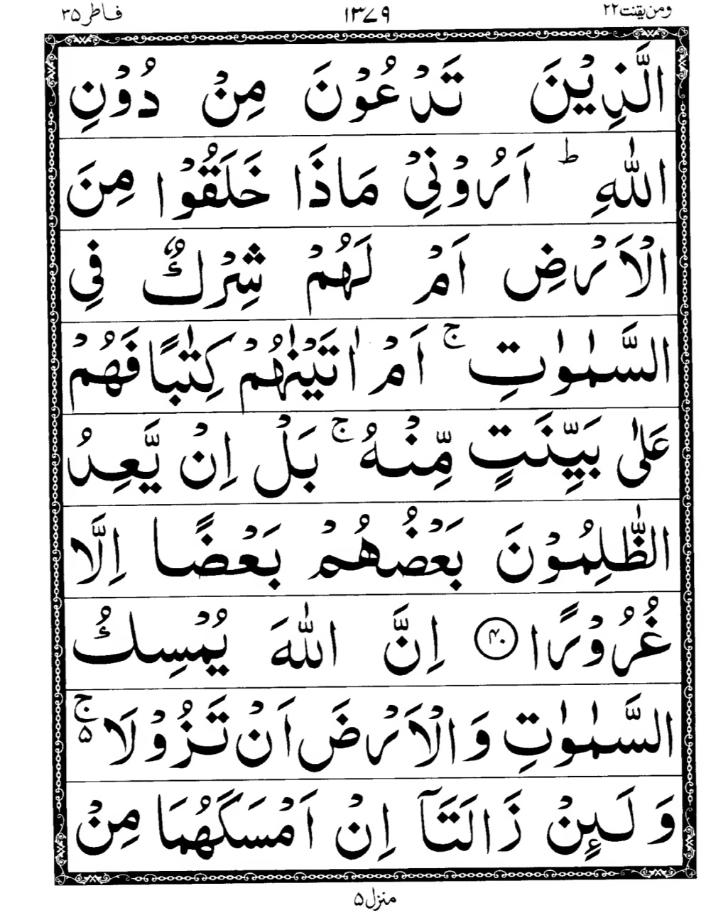 ومن یقنت ۲۲ ۱۳۷۹ فاطر ۳۵
الَّذِيْنَ تَدْعُوْنَ مِنْ دُوْنِ
اللّٰهِ ؕ اَرُوْنِيْ مَاذَا خَلَقُوْا مِنَ
الْاَرْضِ اَمْ لَهُمْ شِرْكٌ فِي
السَّمٰوٰتِ ۚ اَمْ اٰتَيْنٰهُمْ كِتٰبًا فَهُمْ
عَلٰى بَيِّنَتٍ مِّنْهُ ۚ بَلْ اِنْ يَّعِدُ
الظّٰلِمُوْنَ بَعْضُهُمْ بَعْضًا اِلَّا
غُرُوْرًا ﴿۴۰﴾ اِنَّ اللّٰهَ يُمْسِكُ
السَّمٰوٰتِ وَالْاَرْضَ اَنْ تَزُوْلَا ۚ۵
وَلَئِنْ زَالَتَاۤ اِنْ اَمْسَكَهُمَا مِنْ
منزل ۵